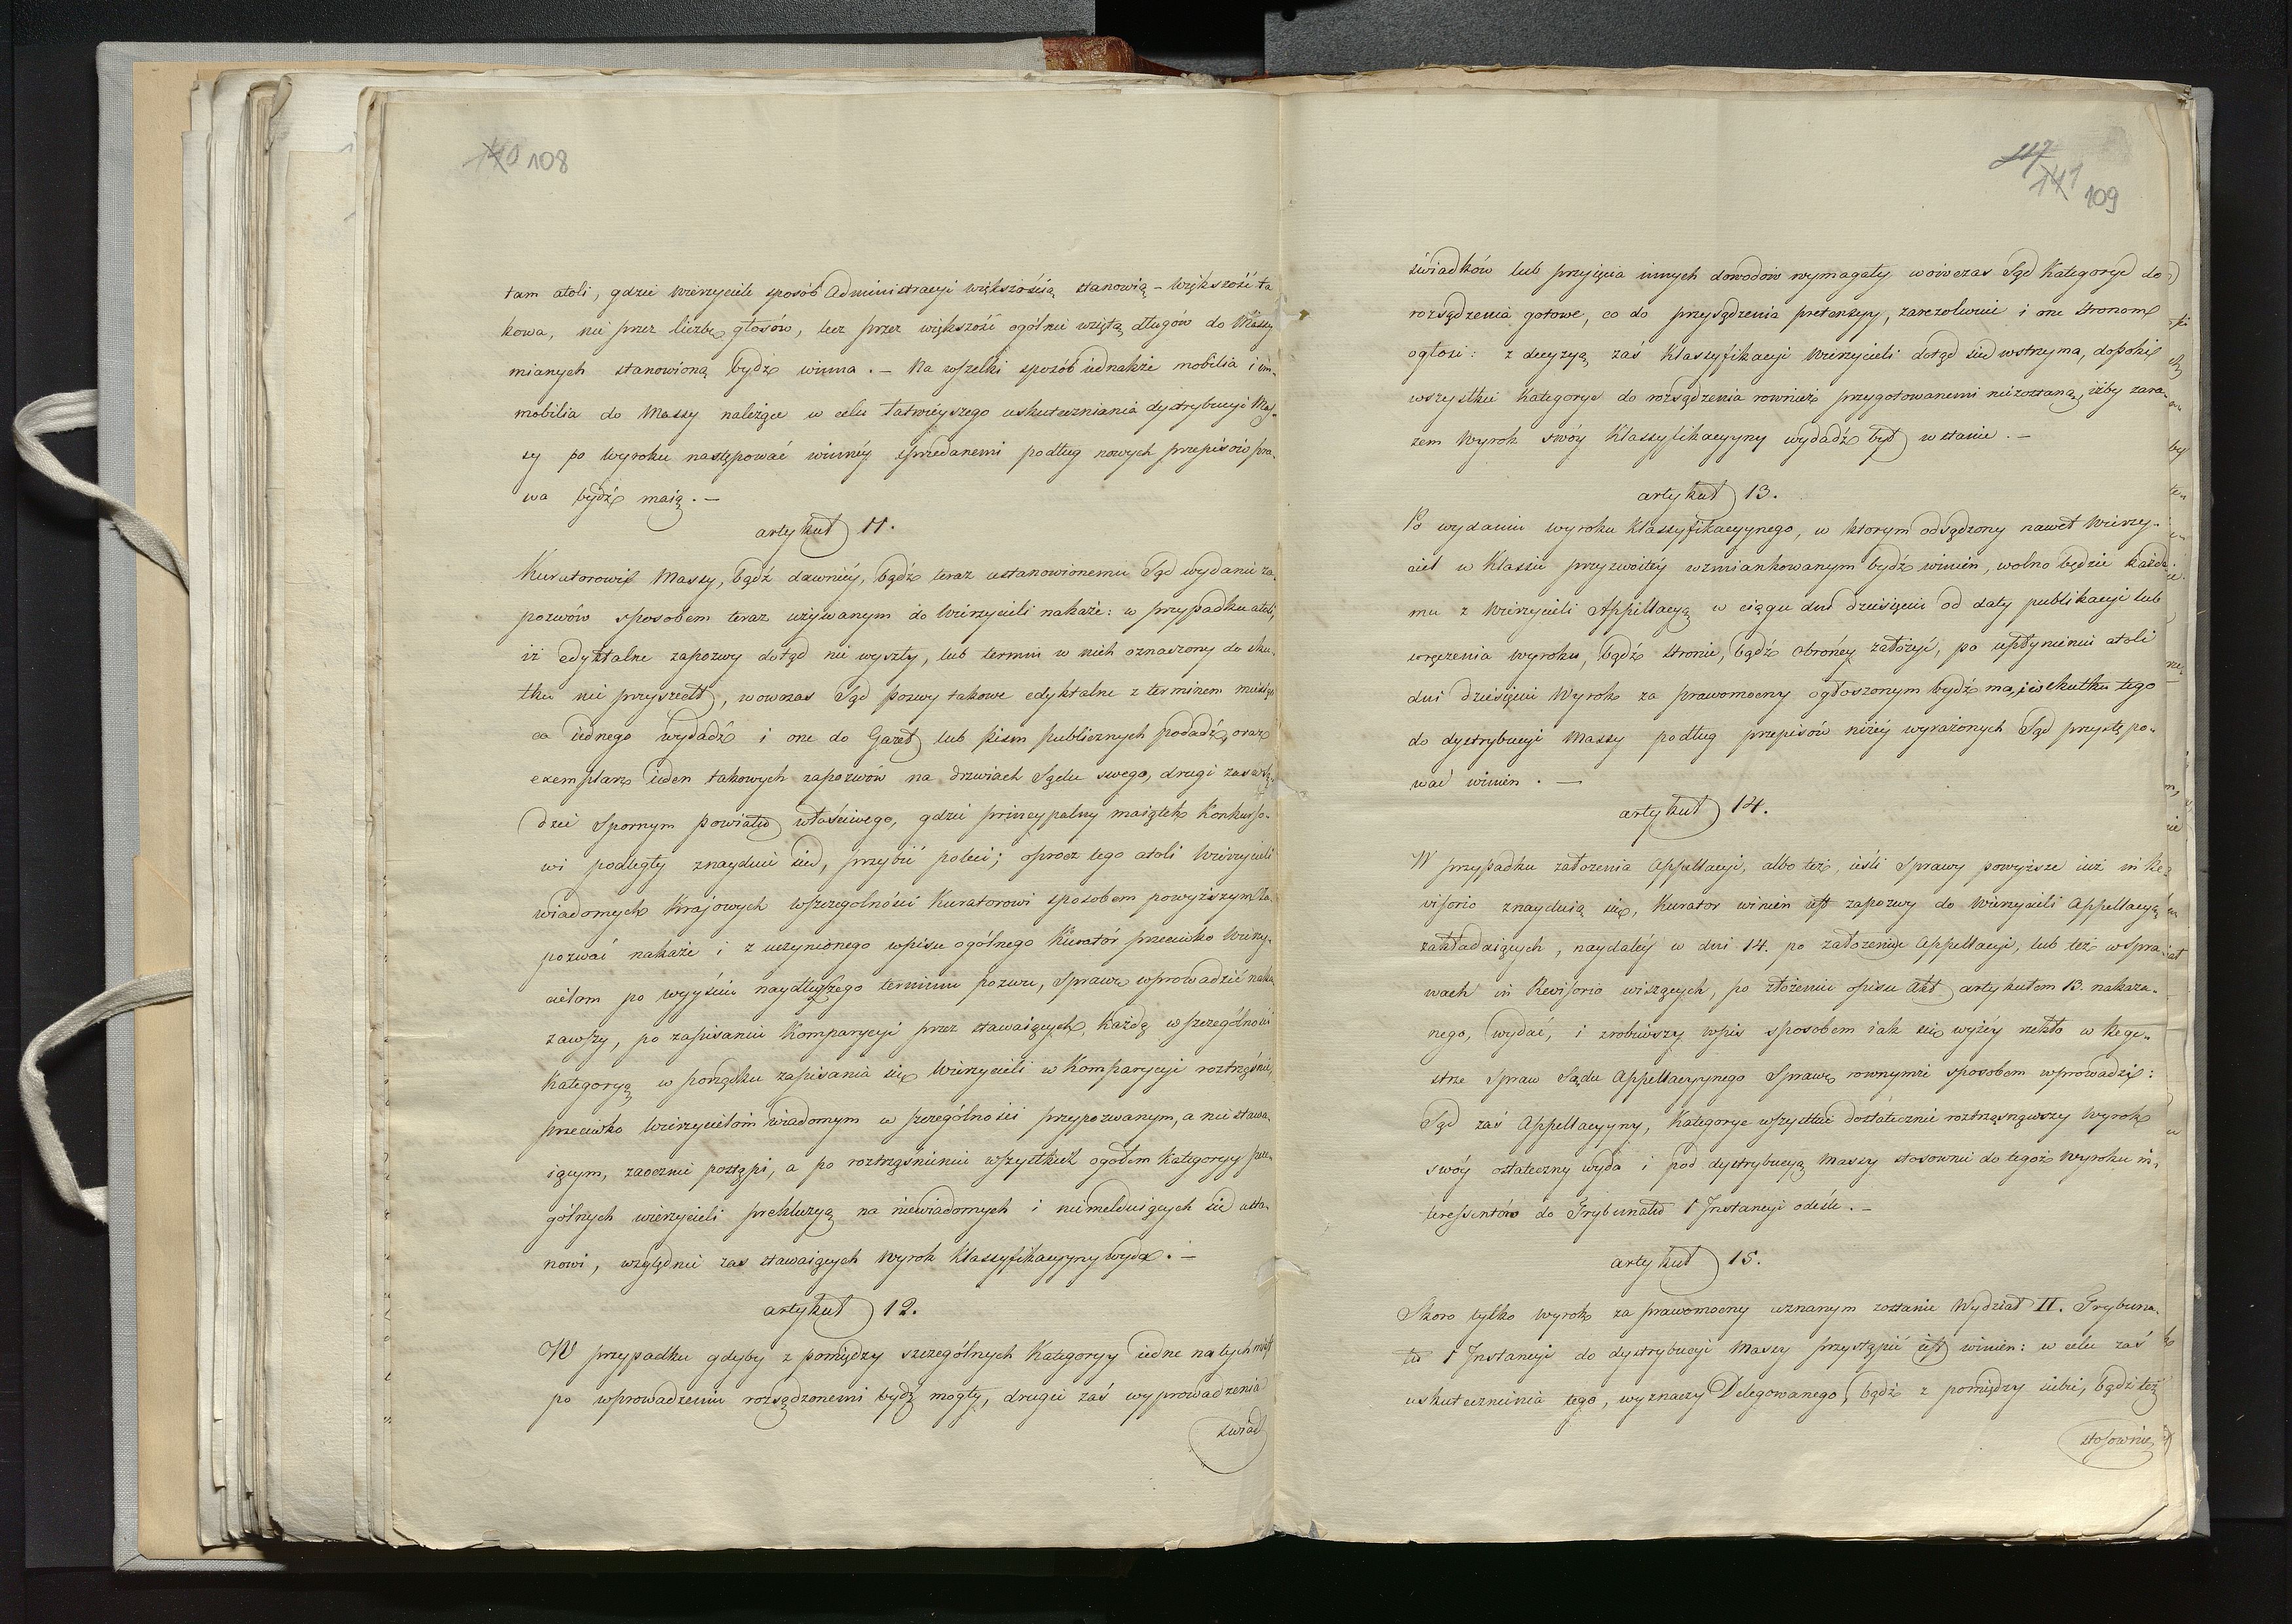 140 108
tam atoli, gdzie Wierzyciele sposób Administracyi większością stanowią – większość ta
kowa, nie przez liczbę głosów, lecz przez większość ogólnie wziętą długów do Massy
mianych stanowioną bydź winna. – Na wszelki sposób iednakże mobilia i im-
mobilia do Massy należące w celu łatwieyszego uskuteczniania dystrybucyi Mas-
sy po wyroku następować winnéy sprzedanemi podług nowych przepisów pra-
wa bydź maią. –
artykuł 11.
Kuratorowi Massy, bądź dawniéy, bądź teraz ustanowionemu Sąd wydanie za-
pozwów sposobem teraz używanym do Wierzycieli nakaże: w przypadku atoli,
iż edyktalne zapozwy dotąd nie wyszły, lub termin w nich oznaczony do sku-
tku nie przyszedł, wowczas Sąd pozwy takowe edyktalne z terminem miesią
ca iednego wydadź i one do Gazet lub pism publicznych podadź, oraz
exemplarz ieden takowych zapozwów na drzwiach Sądu swego, drugi zaś w Są-
dzie Spornym powiatu właściwego, gdzie pryncypalny maiątek Konkurso-
wi podległy znayduie się, przybić poleci; oprocz tego atoli Wierzycieli
wiadomych Krajowych wszczególności Kuratorowi sposobem powyższym za-
pozwać nakaże i z uczynionego wpisu ogólnego Kurator przeciwko Wierzy-
cielom po wyyściu naydłuższego terminu pozwu, Sprawę wprowadzić naka
zawszy, po zapisaniu Komparycyi przez stawaiących, każdą w szczególności
Kategoryą w porządku zapisania się Wierzycieli w Komparycyi roztrząśnie,
przeciwko Wierzycielom wiadomym w szczególności przypozwanym, a nie stawa-
iącym, zaocznie postąpi, a po roztrząśnieniu wszystkich ogołem Kategoryy szcze-
gólnych wierzycieli prekluzyą na niewiadomych i niemelduiących się usta-
nowi, względnie zas stawaiących Wyrok Klassyfikacyyny wyda. –
artykuł 12.
W przypadku gdyby z pomiędzy szczególnych Kategoryy iedne natychmiast
po wprowadzeniu rozsądzonemi bydź mogły, drugie zaś wyprowadzenia
świad
117 141 109
świadków lub przyięcia innych dowodów wymagały wówczas Sąd Kategorye do
rozsądzenia gotowe, co do przysądzenia pretensyy, zarezolwuie i one Stronom
ogłosi: z decyzyą zaś Klassyfikacyi Wierzycieli dotąd się wstrzyma, dopóki
wszystkie Kategorye do rozsądzenia rownież przygotowanemi nie zostaną, iżby zara-
zem Wyrok swóy Klassyfikacyyny wydadź był w stanie. –
artykuł 13.
Po wydaniu wyroku Klassyfikacyynego, w ktorym odsądzony nawet Wierzy-
ciel w Klassie przyzwoitéy wzmiankowanym bydź winien, wolno będzie każde-
mu z Wierzycieli Appellacyą w ciągu dni dziesięciu od daty publikacyi lub
wręczenia wyroku, bądź stronie, bądź obrońcy założyć, po upłynieniu atoli
dni dziesięciu Wyrok za prawomocny ogłoszonym bydź ma, i w skutku tego
do dystrybucyi Massy podług przepisów niżéy wyrażonych Sąd przystępo-
wać winien. –
artykuł 14.
W przypadku założenia Appellacyi, albo też, ieśli Sprawy powyższe iuż in Re-
visorio znayduią się, Kurator winien iest zapozwy do Wierzycieli Appellacyą
zakładaiących, naydaléy w dni 14. po założeniu Appellacyi, lub też w Spra-
wach in Revisorio wiszących, po złożeniu opisu Akt artykułem 13. nakaza-
nego, wydać, i zrobiwszy wpis sposobem iak się wyżéy rzekło w Rege-
strze Spraw Sądu Appellacyynego Sprawę rownymże sposobem wprowadzi:
Sąd zaś Appellacyyny, Kategorye wszystkie dostatecznie roztrząsnąwszy Wyrok
swóy ostateczny wyda i pod dystrybucyą Massy stosownie do tegoż Wyroku in-
teressentów do Trybunału I Instancyi odeśle. –
artykuł 15.
Skoro tylko wyrok za prawomocny uznanym zostanie Wydział II. Trybuna-
łu I Instancyi do dystrybucyi Massy przystąpić iest winien: w celu zaś
uskutecznienia tego, wyznaczy Delegowanego, bądź z pomiędzy siebie, bądź też
stosownie